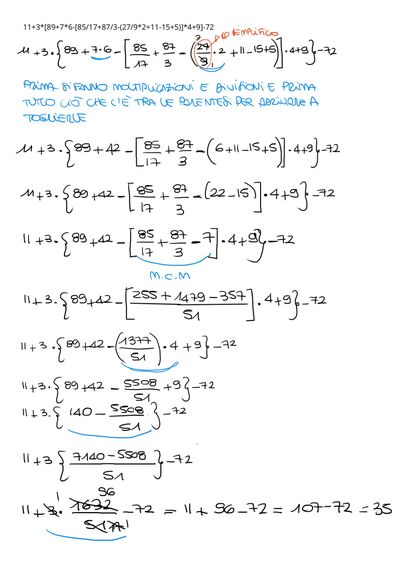 11+3*[89+7*6-[85/17+87/3-(27/9*2+11-15+5)]*4+9]-72
11+3·{89+7·6-[85/17+87/3-(27/9·2+11-15+5)]·4+9}-72
3
SEMPLIFICO
PRIMA SI FANNO MOLTIPLICAZIONI E DIVISIONI E PRIMA
TUTTO CIÒ CHE C'È TRA LE PARENTESI PER ARRIVARE A
TOGLIERLE
11+3·{89+42-[85/17+87/3-(6+11-15+5)]·4+9}-72
11+3·{89+42-[85/17+87/3-(22-15)]·4+9}-72
11+3·{89+42-[85/17+87/3-7]·4+9}-72
M.C.M
11+3·{89+42-[255+1479-357/51]·4+9}-72
11+3·{89+42-(1377/51)·4+9}-72
11+3·{89+42-5508/51+9}-72
11+3·{140-5508/51}-72
11+3{7140-5508/51}-72
11+3·1632/51-72=11+96-72=107-72=35